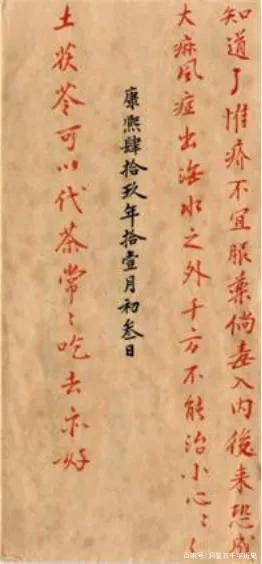 知道了惟疥不宜服藥倘毒入內後來恐成
大痳風症出海水之外千方不能治小心〻〻
康熙肆拾玖年拾壹月初叁日
土茯苓可以代茶常〻吃去亦好
百家号